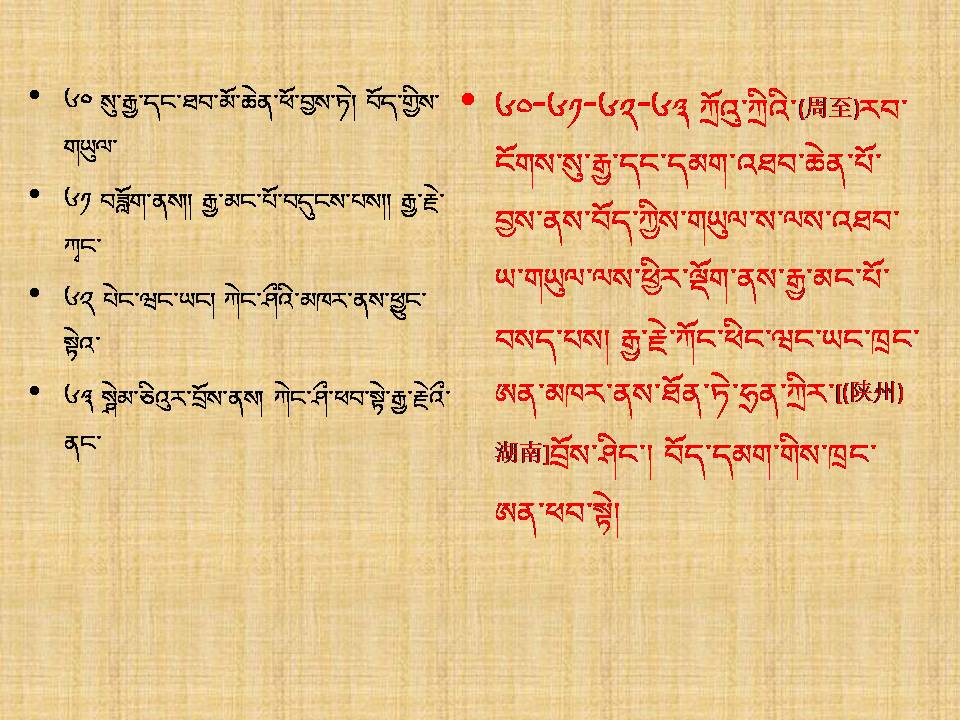 ༦༠ སུ་རྒྱ་དང་ཐབ་མོ་ཆེན་ཕོ་བྱས་ཏེ། བོད་གྱིས་
གཡུལ་
༦༡ བཟློག་ནས།། རྒྱ་མང་པོ་བདུངས་པས།། རྒྱ་རྗེ་
ཀྭང་
༦༢ པེང་ཝང་ཡང། ཀེང་ཤོའི་མཁར་ནས་ཕྱུང་
སྟེའ་
༦༣ སྷེམ་ཅིའུར་བྲོས་ནས། ཀེང་ཤོ་ཕབ་སྟེ་རྒྱ་རྗེའོ་
ནང་
༦༠-༦༡-༦༢-༦༣ ཀྲོའུ་ཀྲིའི་(周至)རབ་
ངོགས་སུ་རྒྱ་དང་དམག་འཐབ་ཆེན་པོ་
བྱས་ནས་བོད་ཀྱིས་གཡུལ་ས་ལས་འཐབ་
ཡ་གཡུལ་ལས་ཕྱིར་ལྡོག་ནས་རྒྱ་མང་པོ་
བསད་པས། རྒྱ་རྗེ་ཀོང་ཕིང་ཝང་ཡང་ཁྲང་
ཨན་མཁར་ནས་ཐོན་ཏེ་ཧྲན་ཀྲིར་[(陕州)
湖南]བྲོས་ཤིང་། བོད་དམག་གིས་ཁྲང་
ཨན་ཕབ་སྟེ།